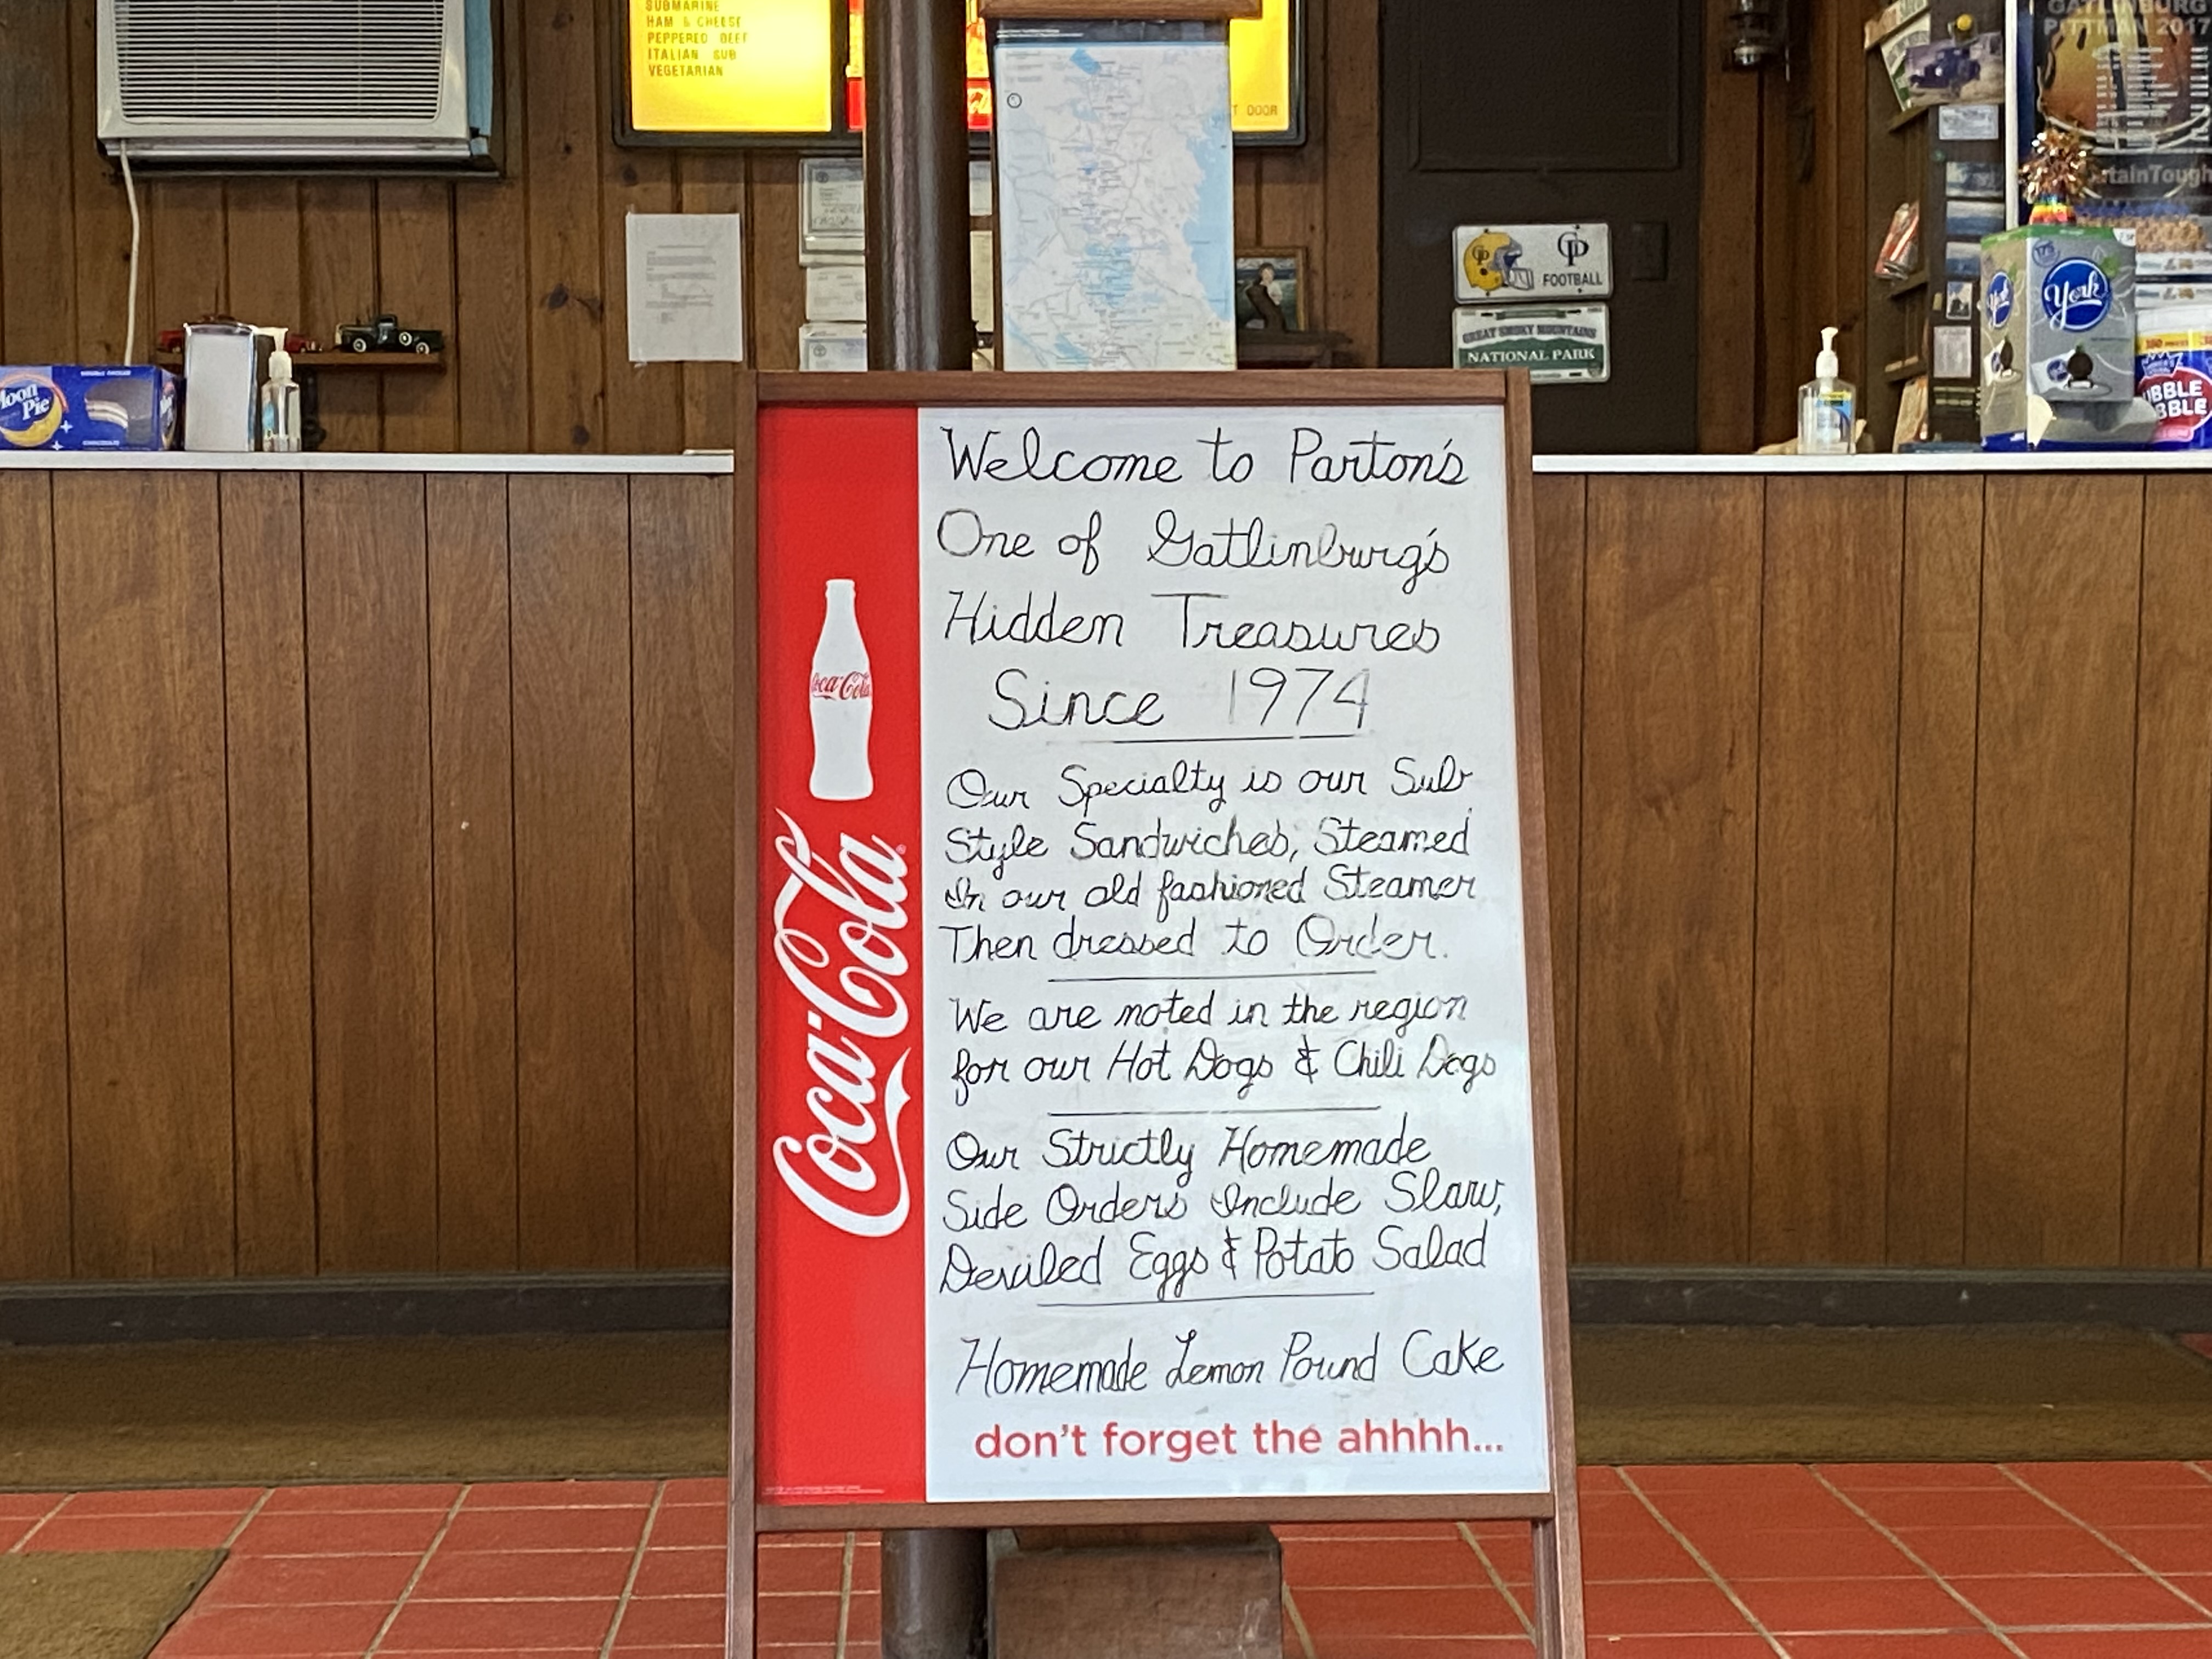 SUBMARINE
HAM & CHEESE
PEPPERED BEEF
ITALIAN SUB
VEGETARIAN
T DOOR
GATLINBURG
PITTMAN 2017
tainTough
GP
GP
FOOTBALL
GREAT SMOKY MOUNTAINS
NATIONAL PARK
Moon
Pie
175
York
York
BBLE
BBLE
Welcome to Parton's
One of Gatlinburg's
Hidden Treasures
Since 1974
Our Specialty is our Sub
Style Sandwiches, Steamed
In our old fashioned Steamer
Then dressed to Order.
We are noted in the region
for our Hot Dogs & Chili Dogs
Our Strictly Homemade
Side Orders Include Slaw,
Deviled Eggs & Potato Salad
Homemade Lemon Pound Cake
don't forget the ahhhh...
Coca-Cola
Coca-Cola®